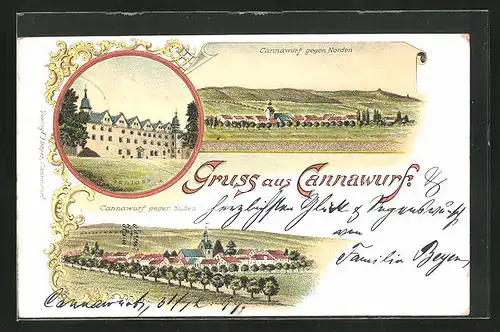 Cannawurf gegen Norden
Schloss
Gruss aus Cannawurf.
Cannawurf gegen Süden
herzlichsten Glück & Segenswunsch
von
Familie Beyer
Cannawurf, 31/12 99.